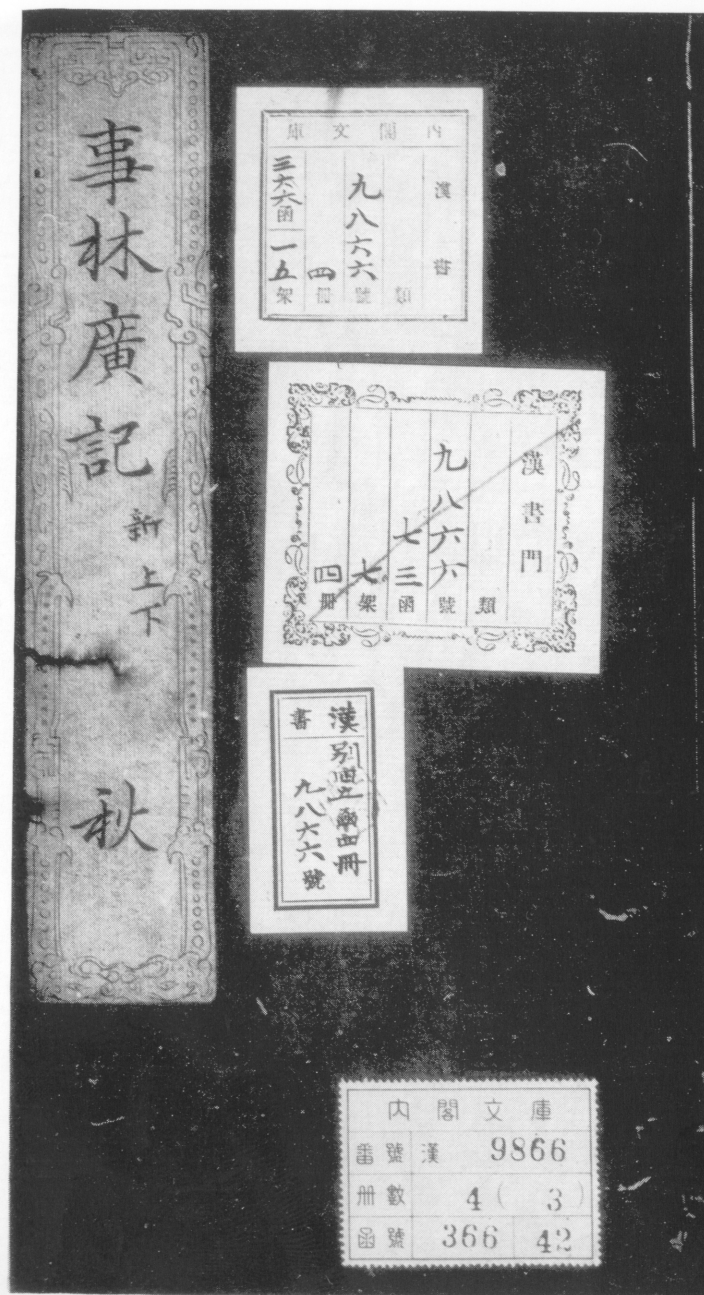 事林廣記 新 上下 秋
內閣文庫
漢書
類
九八六六號
四冊
三六六函
一五架
漢書門
類
九八六六號
七三函
七架
四冊
漢書
四冊
九八六六號
內閣文庫
番號 漢 9866
冊數 4 ( 3 )
函號 366 42